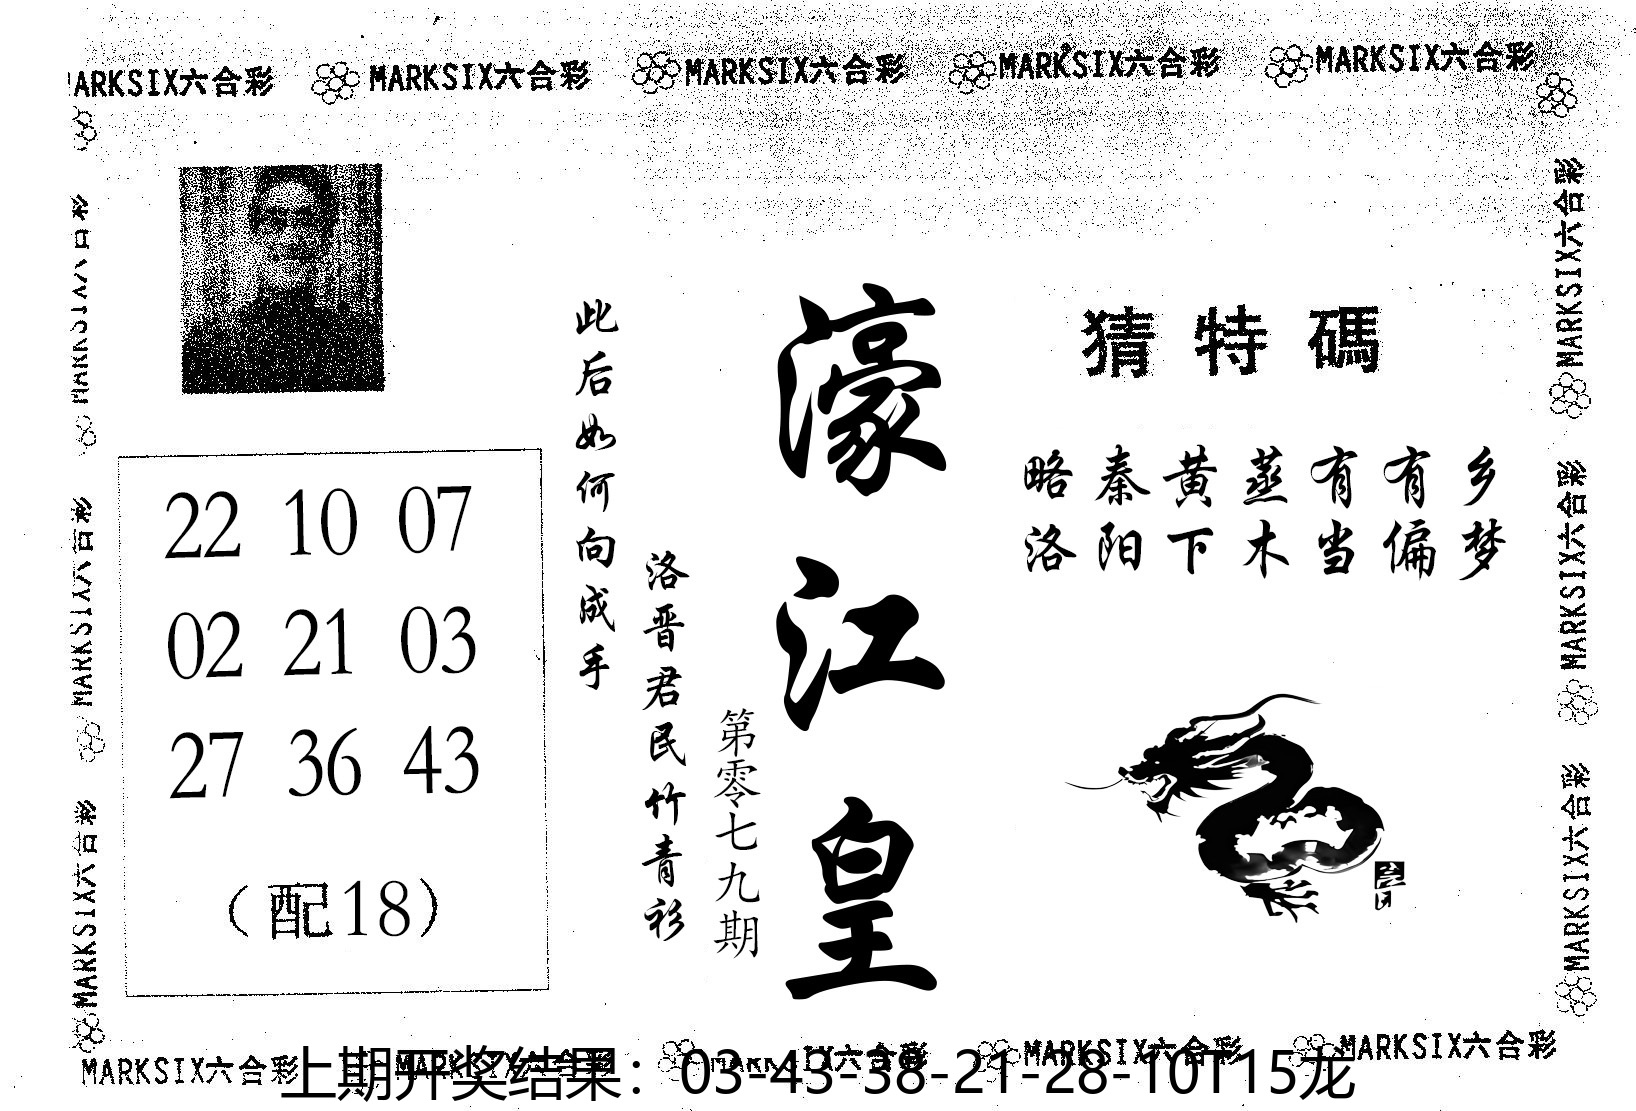 MARKSIX六合彩 MARKSIX六合彩 MARKSIX六合彩 MARKSIX六合彩 MARKSIX六合彩
猜特碼
略秦黄蒸有有乡
洛阳下木当偏梦
濠江皇
第零七九期
洛晋君民竹青衫
此后如何向成手
22 10 07
02 21 03
27 36 43
（配18）
MARKSIX六合彩
MARKSIX六合彩
MARKSIX六合彩
MARKSIX六合彩
MARKSIX六合彩
MARKSIX六合彩
MARKSIX六合彩 MARKSIX六合彩 MARKSIX六合彩 MARKSIX六合彩 MARKSIX六合彩
上期开奖结果：03-43-38-21-28-10T15龙